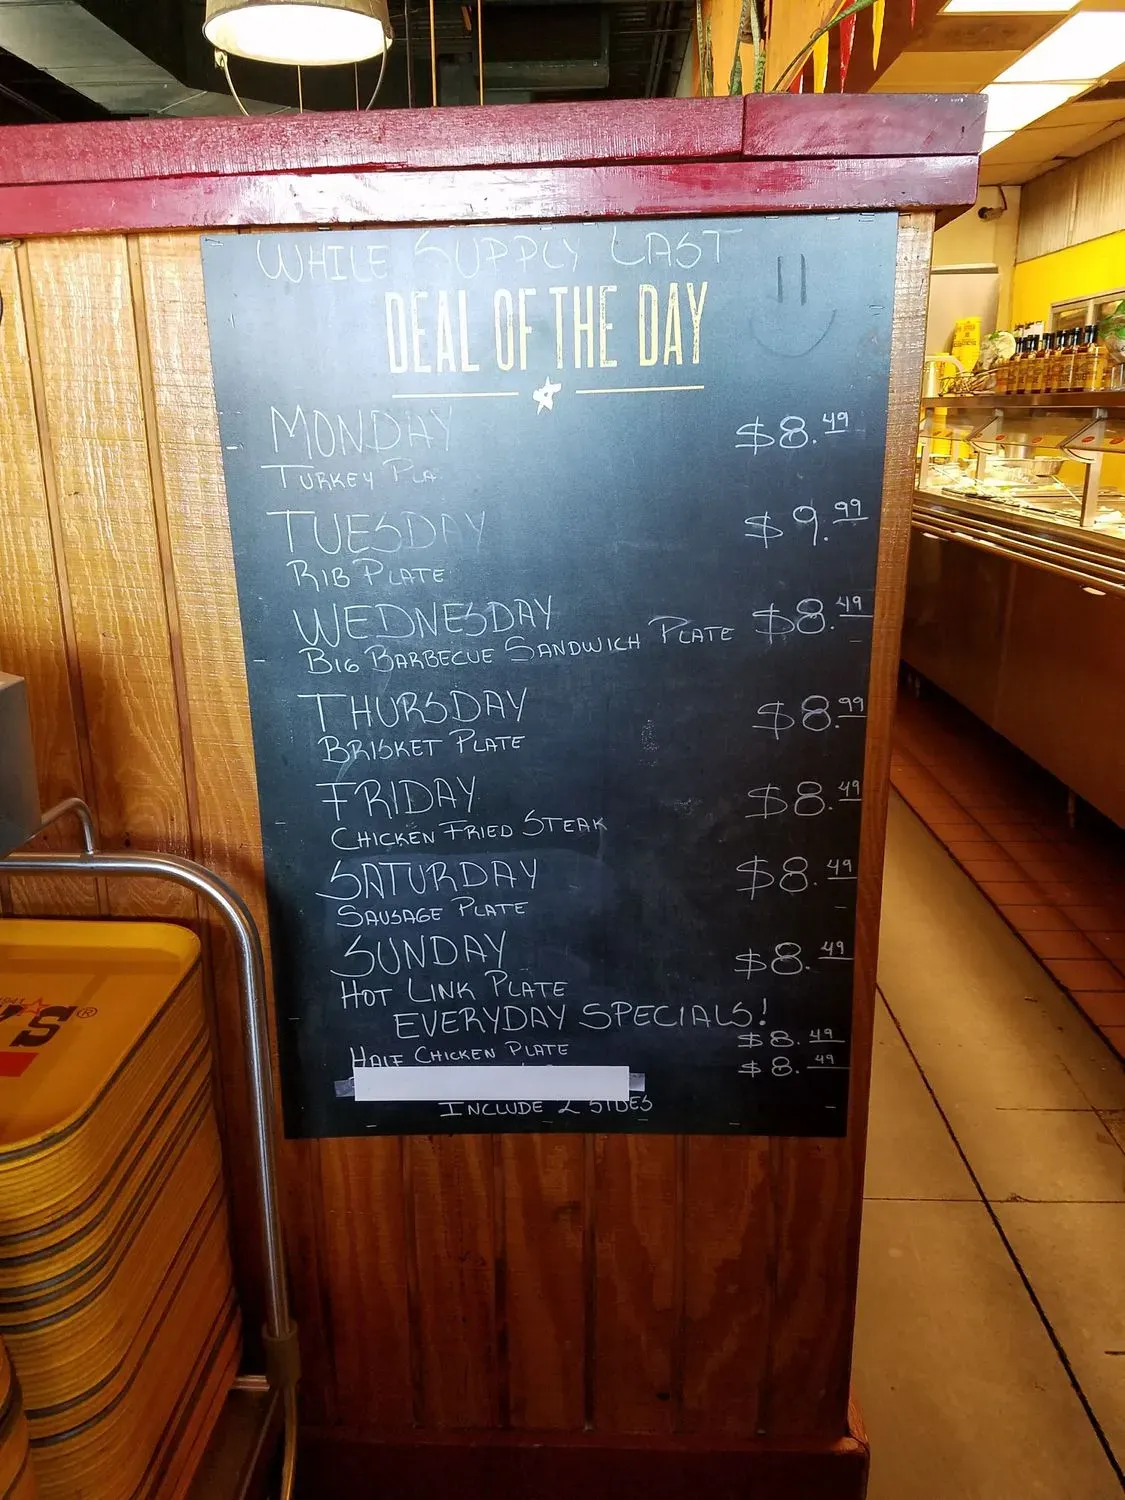 WHILE SUPPLY LAST
DEAL OF THE DAY
MONDAY $8.49
TURKEY PLA
TUESDAY $9.99
RIB PLATE
WEDNESDAY $8.49
BIG BARBECUE SANDWICH PLATE
THURSDAY $8.99
BRISKET PLATE
FRIDAY $8.49
CHICKEN FRIED STEAK
SATURDAY $8.49
SAUSAGE PLATE
SUNDAY $8.49
HOT LINK PLATE
EVERYDAY SPECIALS!
HALF CHICKEN PLATE $8.49
$8.49
INCLUDE 2 SIDES
1941
Y'S®